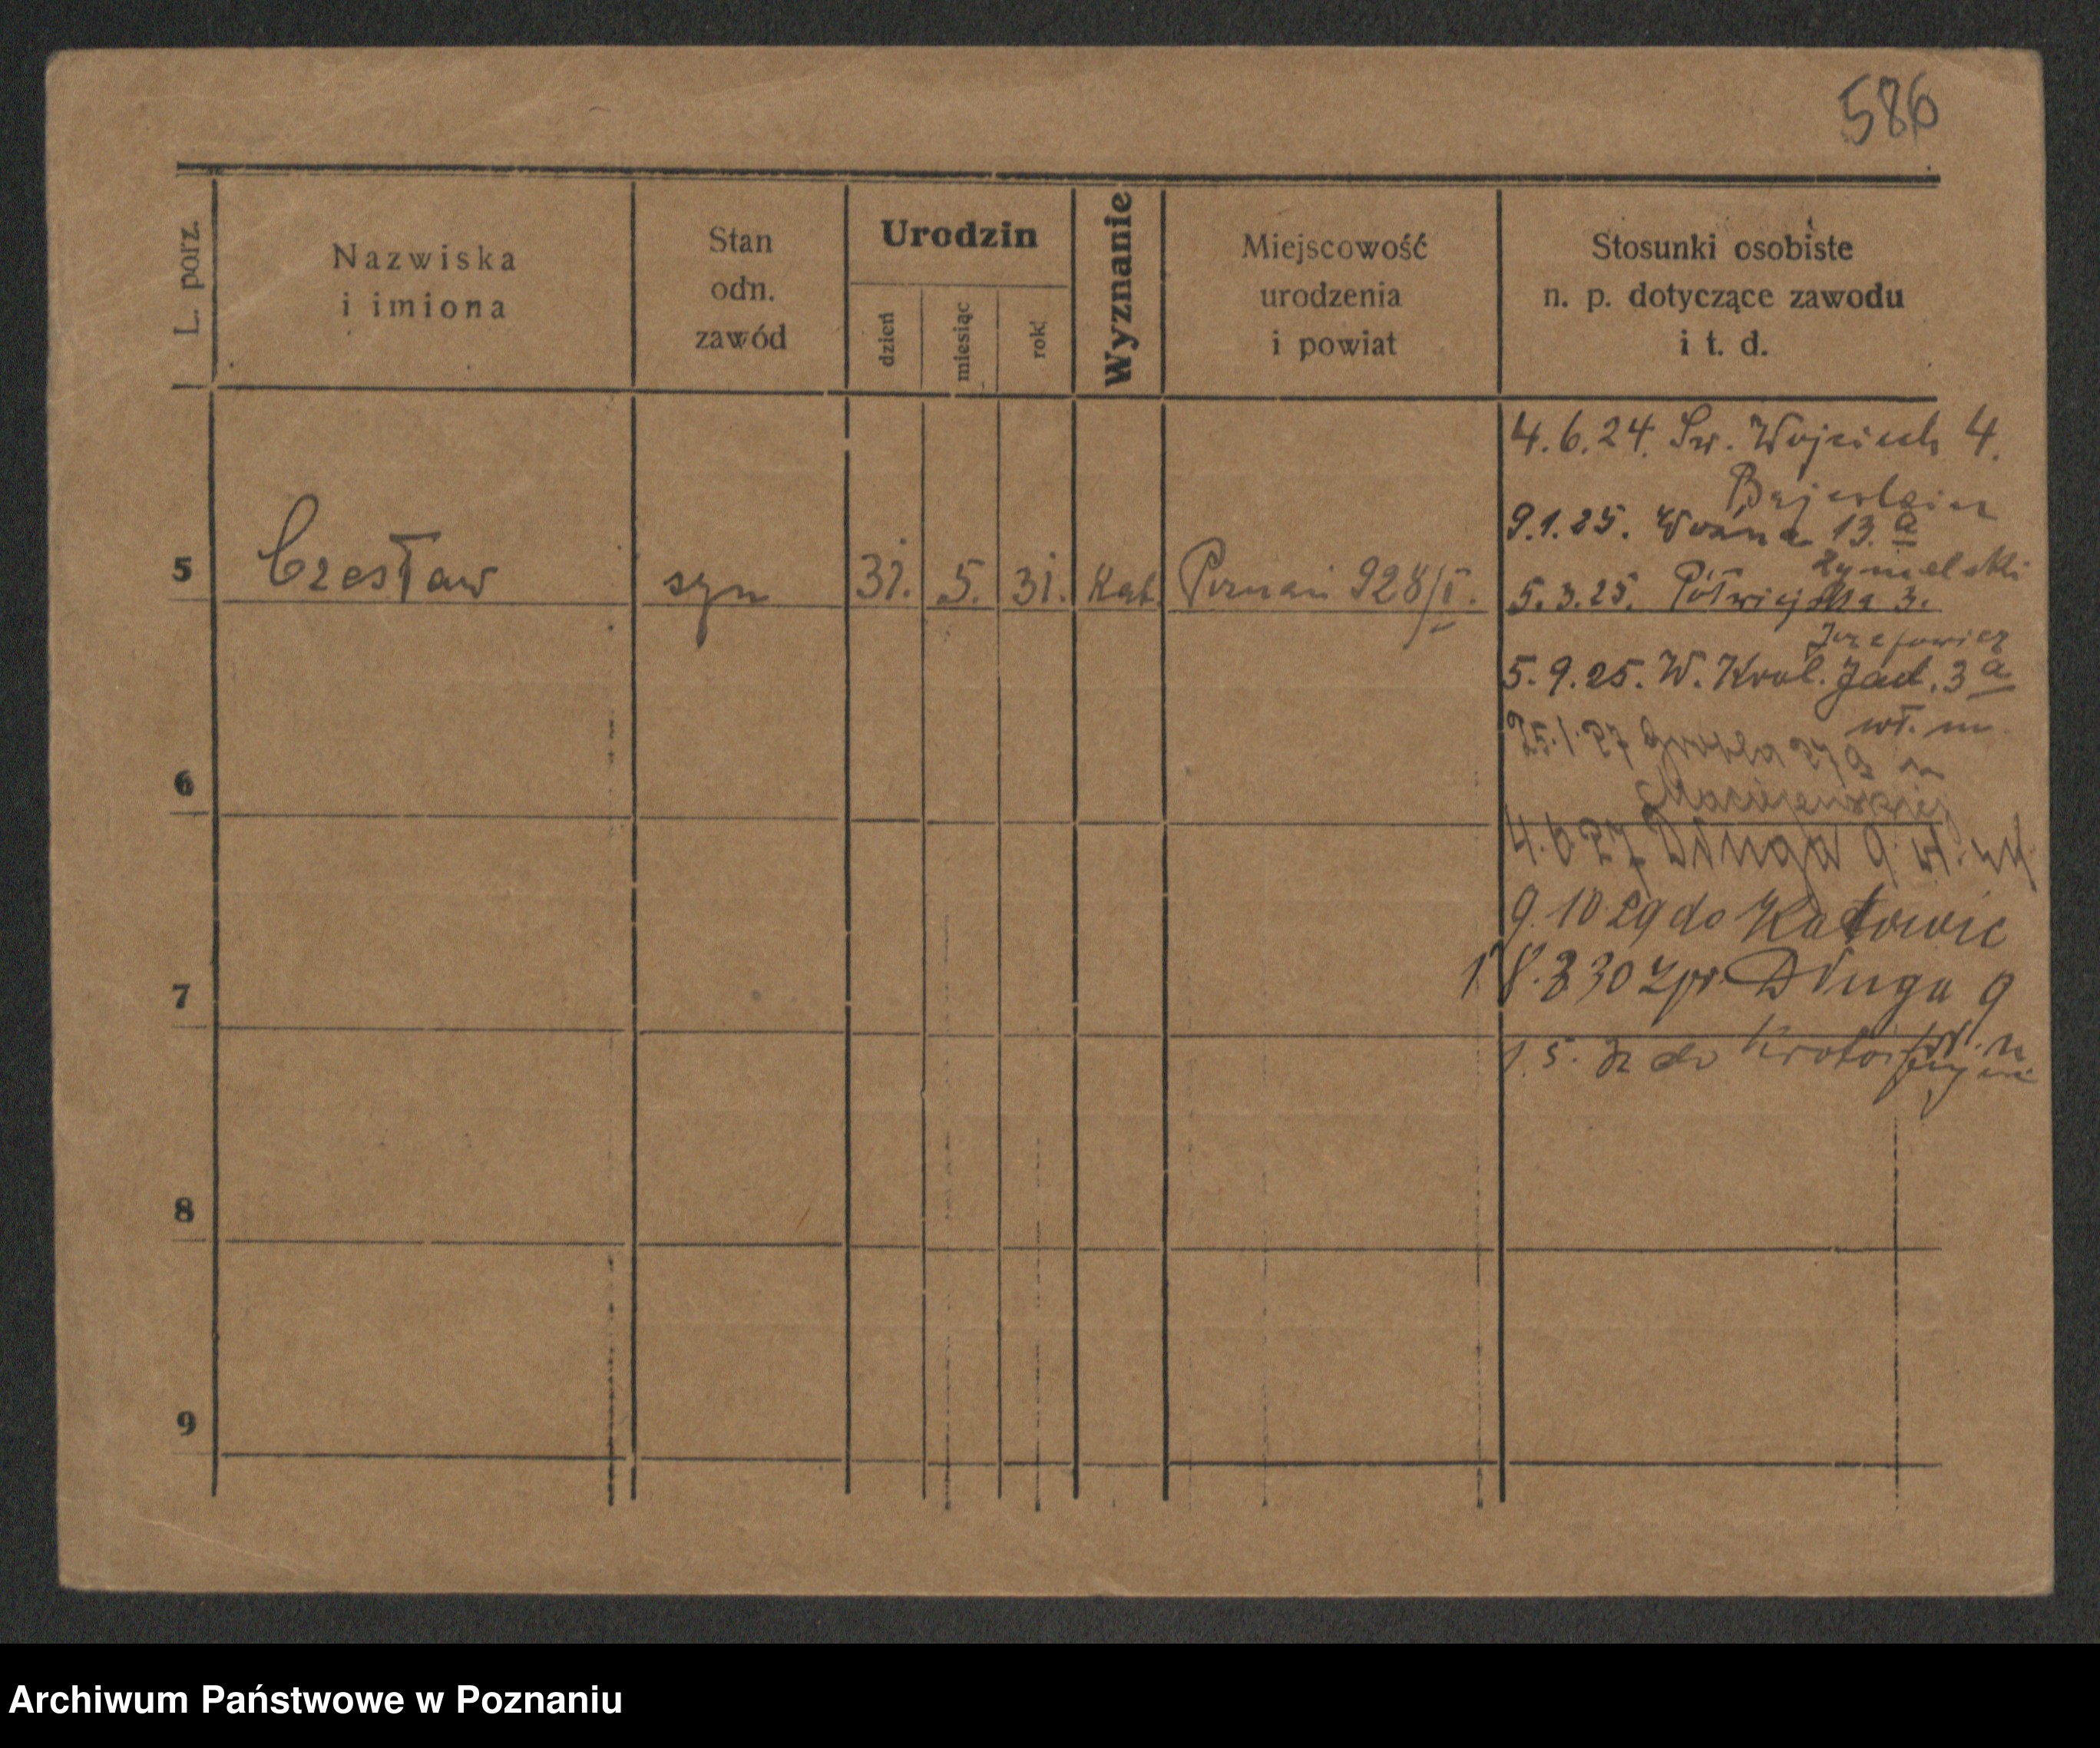 586
L. porz.
Nazwiska
i imiona
Stan
odn.
zawód
Urodzin
dzień
miesiąc
rok
Wyznanie
Miejscowość
urodzenia
i powiat
Stosunki osobiste
n. p. dotyczące zawodu
i t. d.
5 Czesław syn 31. 5. 31. Kat. Poznań 928/I.
4.6.24. Św. Wojciech 4.
9.1.25. Woźna 13.a
5.3.25. Półwiejska 3.
5.9.25. W. Król. Jad. 3a
wł. m
25.1.27
6
Maciejewskiej
4.6.27 Długa 9.
9.10 29 do Katowic
330 zpr. Długa 9
7
1.5. do
8
9
Archiwum Państwowe w Poznaniu